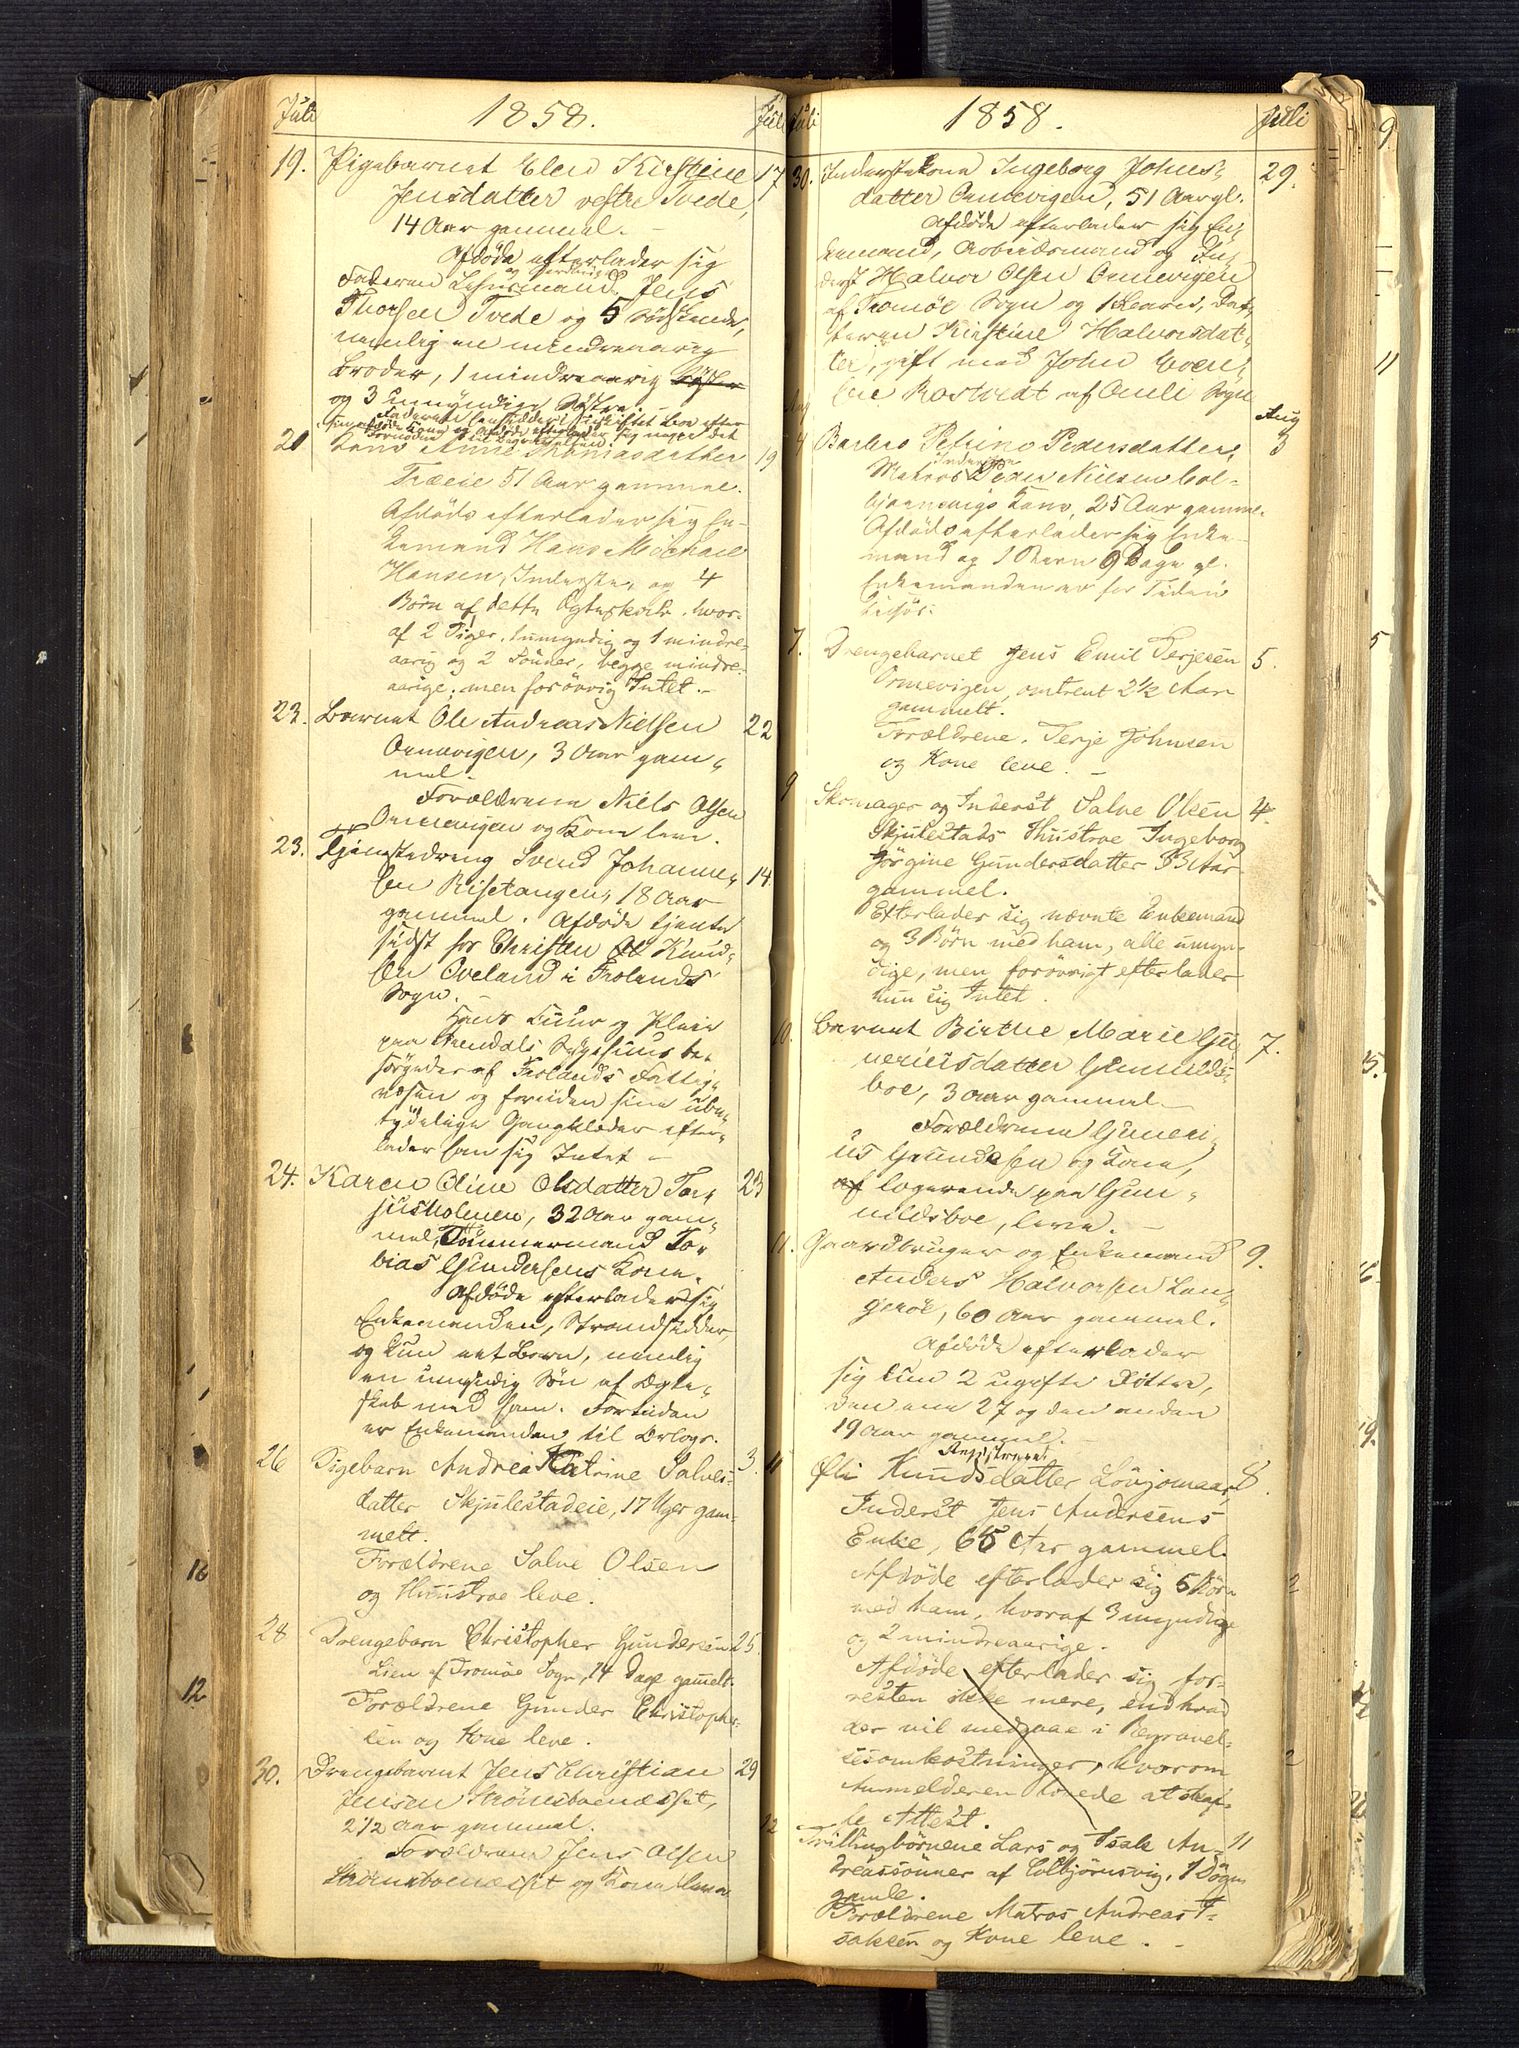 Juli 1858. Juli
19. Pigebarnet Elen Kirstine 17
Jensdatter vestre Tvede,
14 Aar gammel. –
Afdøde efterlader sig
Faderen Lehnsmand Jens
Thorsen Tvede og 5 Sødskende,
nemlig en mindreaarig
Broder, 1 mindreaarig Søster
og 3 umyndige Søstre.
20 Kone Anne Thomasdatter 19
Træeie 51 Aar gammel.
Afdøde efterlader sig En-
kemand Hans Michael
Hansen, Inderste, og 4
Børn af dette Ægteskab, hvor-
af 2 Piger, 1 umyndig og 1 mindre-
aarig og 2 Sønner, begge mindre-
aarige; men forøvrig Intet. –
23. Barnet Ole Andreas Nielsen 22
Onnevigen, 3 Aar gam-
mel.
Forældrene Niels Olsen
Onnevigen og Kone leve.
23. Tjenestedreng Svend Johanne- 14.
sen Risetangen, 18 Aar
gammel. Afdøde tjente
sidst for Christen Knud-
sen Oveland i Frolands
Sogn. –
Hans Kuur og Pleie
paa Arendals Sygehuus be-
sørgedes af Frolands Fattig-
væsen og foruden sine ube-
tydelige Gangklæder efter-
lader han sig Intet –
24. Karen Oline Olsdatter Tor- 23
jusholmen, 32 Aar gam-
mel, Tømmermand To-
bias Gundersens Kone.
Afdøde efterlader sig
Enkemanden, Strandsidder,
og kun eet Barn, nemlig
en umyndig Søn af Ægte-
skab med ham. Fortiden
er Enkemanden til Orlogs.
26 Pigebarn Andrea Katrine Salves- 3.
datter Skjulestadeie, 17 Uger gam-
melt.
Forældrene Salve Olsen
og Huustroe leve.
28 Drengebarn Christopher Gundersen 25.
Lien af Tromøe Sogn, 14 Dage gammelt.
Forældrene Gunder Christopher-
sen og Kone leve.
30. Drengebarnet Jens Christian 29
Jensen Strømsboenæsset,
2 1/2 Aar gammel.
Forældrene Jens Olsen
Strømsboenæsset og Kone leve
Juli 1858. Juli
30. Inderstekone Ingeborg Johns- 29.
datter Onnevigen, 51 Aar gl.
Afdøde efterlader sig En-
kemand, Arbeidsmand og In-
derst Halvor Olsen Onnevigen
af Tromøe Sogn og 1 Barn, Dat-
teren Kirstine Halvorsdat-
ter, gift med John Even-
sen Rostvedt af Omli Sogn
Aug Aug
4 Barbro Petrine Pedersdatter, 3
Inderste
Matros Peder Nielsen Col-
bjørnsvigs Kone, 25 Aar gammel.
Afdøde efterlader sig Enke-
mand og 1 Barn 9 Dage gl.
Enkemanden er for Tiden
tilsøes.
7. Drengebarnet Jens Emil Terjesen 5.
Onnevigen, omtrent 2 1/2 Aar
gammelt.
Forældrene, Terje Johnsen
og Kone leve. –
9 Skomager og Inderst Salve Olsen 4.
Skjulestads Hustroe Ingeborg
Jørgine Gundersdatter 33 Aar
gammel.
Efterlader sig nævnte Enkemand
og 3 Børn med ham, alle umyn-
dige, men forøvrigt efterlader
hun sig Intet.
10. Barnet Birthe Marie Gu- 7.
neriusdatter Gunnilds-
boe, 3 Aar gammel –
Forældrene Guneri-
us Gundersen og Kone,
logerende paa Gun-
nildsboe, leve. –
11. Gaardbruger og Enkemand 9.
Anders Halvorsen Lan-
gerøe, 60 Aar gammel.
Afdøde efterlader
sig kun 2 ugifte Døttre,
den ene 27 og den anden
19 Aar gammel.
Registreret
11 Øli Knudsdatter Løvjomaas, 8.
Inderst Jens Andersens
Enke, 65 Aar gammel.
Afdøde efterlader sig 5 Børn
med ham, hvoraf 3 myndige
og 2 mindreaarige.
Afdøde efterlader sig for-
resten ikke mere, end hvad
der vil medgaae i Begravel-
sesomkostninger, hvorom
Anmelderen lovede at skaf-
fe Attest.
12 Tvillingbørnene Lars og Isak An- 11
dreassønner af Colbjørnsvig, 1 Døgn
gamle.
Forældrene Matros Andreas I-
saksen og Kone leve. –